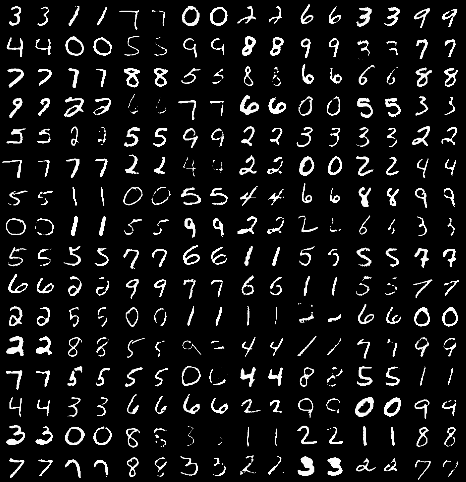 3 3 1 1 7 7 0 0 2 2 6 6 3 3 9 9
4 4 0 0 5 5 9 9 8 8 9 9 3 3 7 7
7 7 7 7 8 8 5 5 8 8 6 6 6 6 8 8
9 9 2 2 6 6 7 7 6 6 0 0 5 5 3 3
5 5 2 2 5 5 9 9 2 2 3 3 3 3 2 2
7 7 7 7 2 2 4 4 2 2 0 0 2 2 4 4
5 5 1 1 0 0 5 5 4 4 6 6 8 8 9 9
0 0 1 1 5 5 9 9 2 2 2 6 6 3 3
5 5 5 5 7 7 6 6 1 1 5 5 5 5 7 7
6 6 2 2 9 9 7 7 6 6 1 1 5 5 7 7
2 2 5 5 0 0 1 1 1 1 6 6 0 0
2 2 8 8 5 5 9 4 4 1 1 7 7 9 9
7 7 5 5 5 5 0 4 4 8 8 5 5 1 1
4 4 3 3 6 6 6 6 2 2 9 9 0 0 9 9
3 3 0 0 8 3 1 1 2 2 1 1 8 8
7 7 7 7 8 8 3 3 2 3 3 2 2 7 7